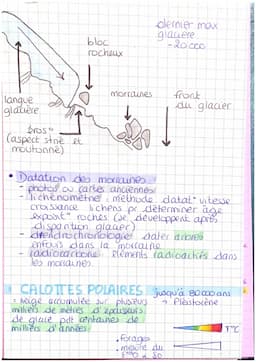 dernier max
glacière
~ 20 000
bloc
rocheux
morraines
front
du glacier
langue
glacière
(aspect strié et
moutonné)
• Datation des morraines
- photos ou cartes anciennes
- lichénométrie : méthode datat° vitesse
croissance lichens pr déterminer âge
exposit° roches (se développent après
disparition glacier)
- dendrochronologie dater arbres
enfouis dans la morraine
- radiocarbone éléments radioactifs dans
les morraines.
CALOTTES POLAIRES
jusqu'à 80000 ans
: Neige accumulée sur plusieurs
→ Pléistocène
milliers de mètres d'épaisseurs
de glace pdt centaines de
milliers d'années
T°C
• Forages